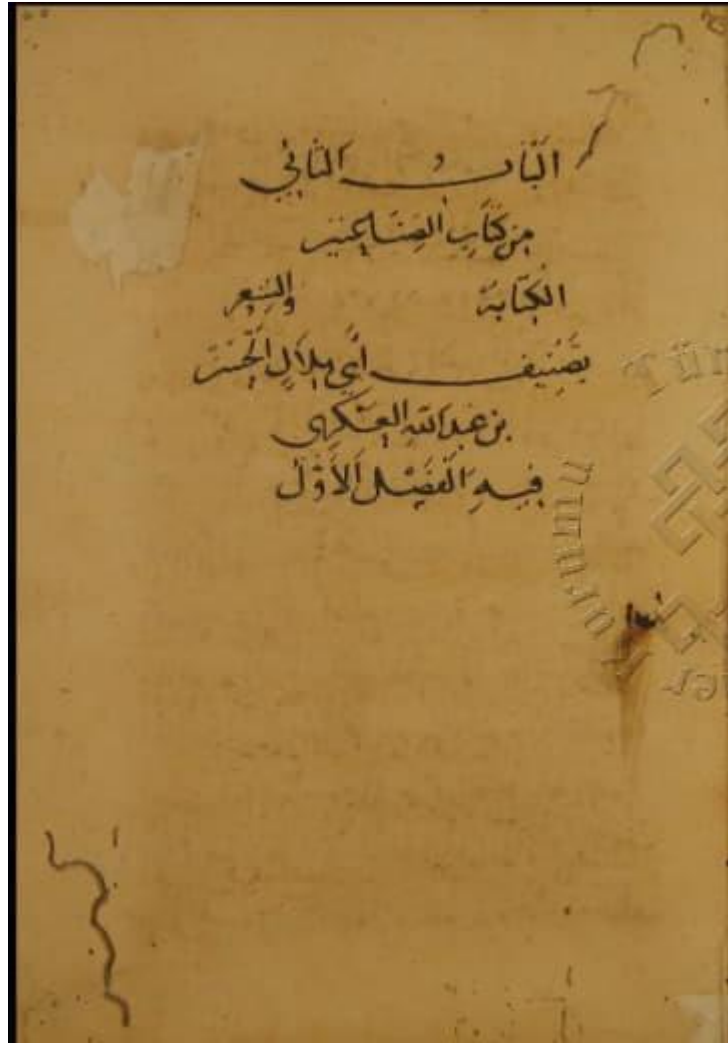 الباب الثاني
من كتاب الصناعتين
الكتابة والشعر
تصنيف أبي هلال الحسن
بن عبد الله العسكري
فيه الفصل الأول